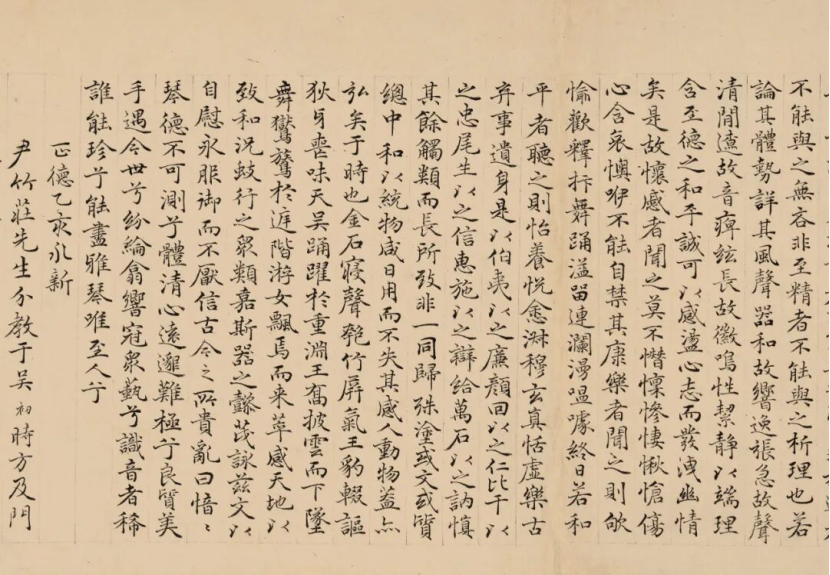 不能與之無吝非至精者不能與之析理也若
論其體勢詳其風聲器和故響逸張急故聲
清閒遼故音痺絃長故徽鳴性絜静以端理
含至德之和平誠可以感盪心志而發洩幽情
矣是故懷慼者聞之莫不憯懍慘悽愀愴傷
心含哀懊咿不能自禁其康樂者聞之則欨
愉歡釋抃舞踊溢留連瀾漫嗢噱終日若和
平者聽之則怡養悅悆淑穆玄真恬虛樂古
弃事遺身是以伯夷以之廉顏回以之仁比干以
之忠尾生以之信惠施以之辯給萬石以之訥慎
其餘觸類而長所致非一同歸殊塗或文或質
總中和以統物咸日用而不失其感人動物蓋亦
弘矣于時也金石寢聲匏竹屏氣王豹輟謳
狄牙喪味天吴踊躍於重淵王喬披雲而下墜
舞鸑鷟於庭階游女飄焉而來萃感天地以
致和況蚑行之眾類嘉斯器之懿茂詠兹文以
自慰永服御而不厭信古今之所貴亂曰愔〻
琴德不可測兮體清心遠邈難極兮良質美
手遇今世兮紛綸翕響冠眾藝兮識音者稀
誰能珍兮能盡雅琴唯至人兮
正德乙亥永新
尹竹莊先生分教于吴初時方及門